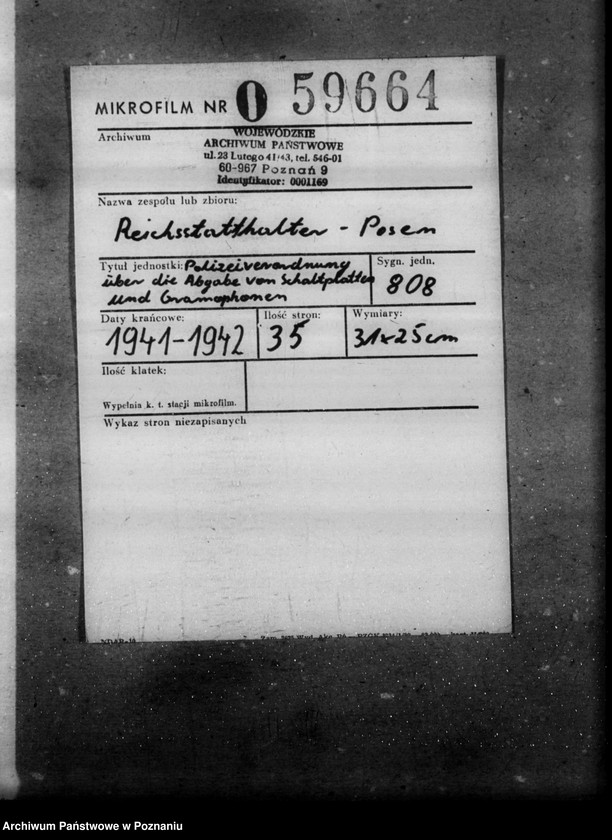 MIKROFILM NR O 59664
Archiwum
WOJEWÓDZKIE
ARCHIWUM PAŃSTWOWE
ul. 23 Lutego 41/43, tel. 546-01
60-967 Poznań 9
Identyfikator: 0001169
Nazwa zespołu lub zbioru:
Reichsstatthalter - Posen
Tytuł jednostki: Polizeiverordnung
über die Abgabe von Schallplatten
und Gramophonen
Sygn. jedn.
808
Daty krańcowe:
1941-1942
Ilość stron:
35
Wymiary:
31x25cm
Ilość klatek:
Wypełnia k. t. stacji mikrofilm.
Wykaz stron niezapisanych
Archiwum Państwowe w Poznaniu